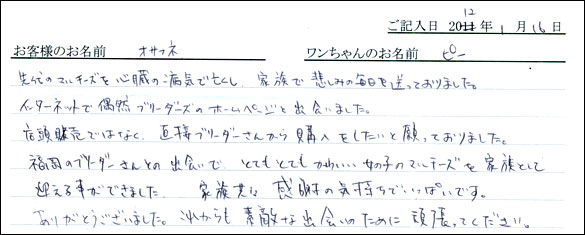 ご記入日 2012年 1月 16日
お客様のお名前 オサフネ ワンちゃんのお名前 ピー
先代のマルチーズを心臓の病気で亡くし、家族で悲しみの毎日を送っておりました。
インターネットで偶然ブリーダーズのホームページと出会いました。
店頭販売ではなく、直接ブリーダーさんから購入をしたいと願っておりました。
福岡のブリーダーさんとの出会いで、とてもとてもかわいい女の子のマルチーズを家族として
迎える事ができました。 家族共に感謝の気持ちでいっぱいです。
ありがとうございました。これからも素敵な出会いのために頑張ってください。